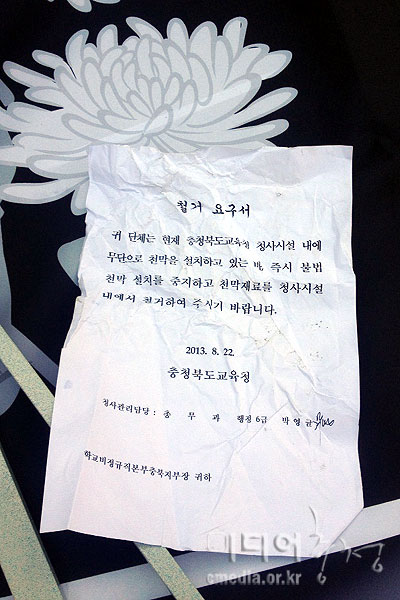 철거 요구서
귀 단체는 현재 충청북도교육청 청사시설 내에
무단으로 천막을 설치하고 있는 바, 즉시 불법
천막 설치를 중지하고 천막재료를 청사시설
내에서 철거하여 주시기 바랍니다.
2013. 8. 22.
충청북도교육청
청사관리담당 : 총 무 과 행정6급 박영균
학교비정규직본부충북지부장 귀하
미디어충청
cmedia.or.kr